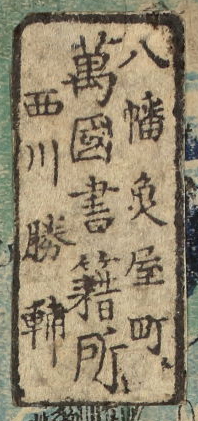 八幡魚屋町
萬國書籍所
西川勝輔